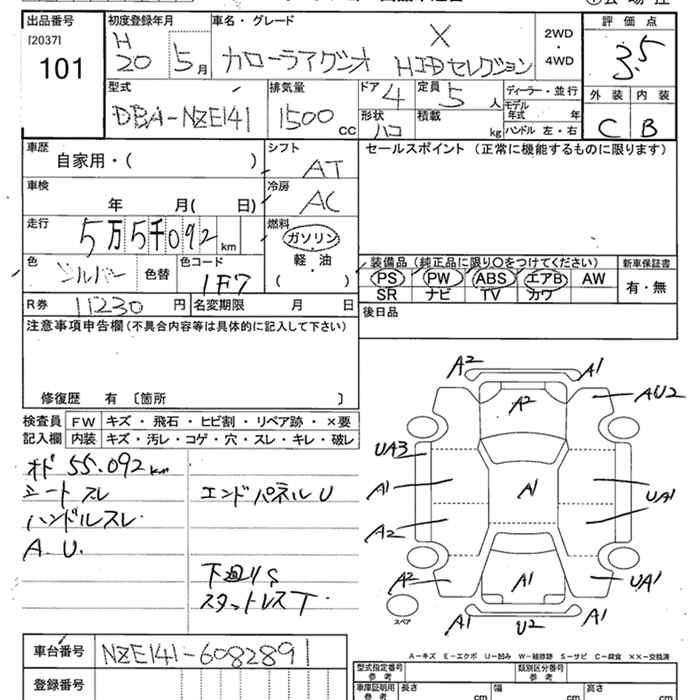 出品番号
[2037]
101
初度登録年月
H
20 5月
車名・グレード
X
カローラアクシオ HIDセレクション
2WD
・
4WD
評価点
3.5
外装 内装
C B
型式
DBA-NZE141
排気量
1500
CC
ドア
4
定員
5 人
ディーラー・並行
モデル
年式 年
形状
ハコ
積載
kg
ハンドル 左・右
車歴
自家用・( )
シフト
AT
セールスポイント (正常に機能するものに限ります)
車検
年 月( 日)
冷房
AC
走行
5万5千092 km
燃料
ガソリン
軽・油
( )
色
シルバー
色替
色コード
1F7
装備品(純正品に限り○をつけてください)
PS PW ABS エアB AW
SR ナビ TV カワ
新車保証書
有・無
R券
11230 円
名変期限 月 日
後日品
注意事項申告欄(不具合内容等は具体的に記入して下さい)
修復歴 有〔箇所 〕
検査員
記入欄
FW キズ・飛石・ヒビ割・リペア跡・×要
内装 キズ・汚レ・コゲ・穴・スレ・キレ・破レ
オド 55.092km
シート スレ
エンドパネルU
ハンドルスレ
A.U.
下廻りS
スタットレスT
A2 A1
A2
AU2
UA3
A1
A1
UA1
A2
A2
A1
UA1
A1
U2
A1
スペア
A-キズ E-エクボ U-凹み W-補修跡 S-サビ C-腐食 ××-交換済
車台番号
NZE141-6082891
登録番号
型式指定番号
参考
類別区分番号
参考
車庫証明用
参考
長さ
cm
幅
cm
高さ
cm